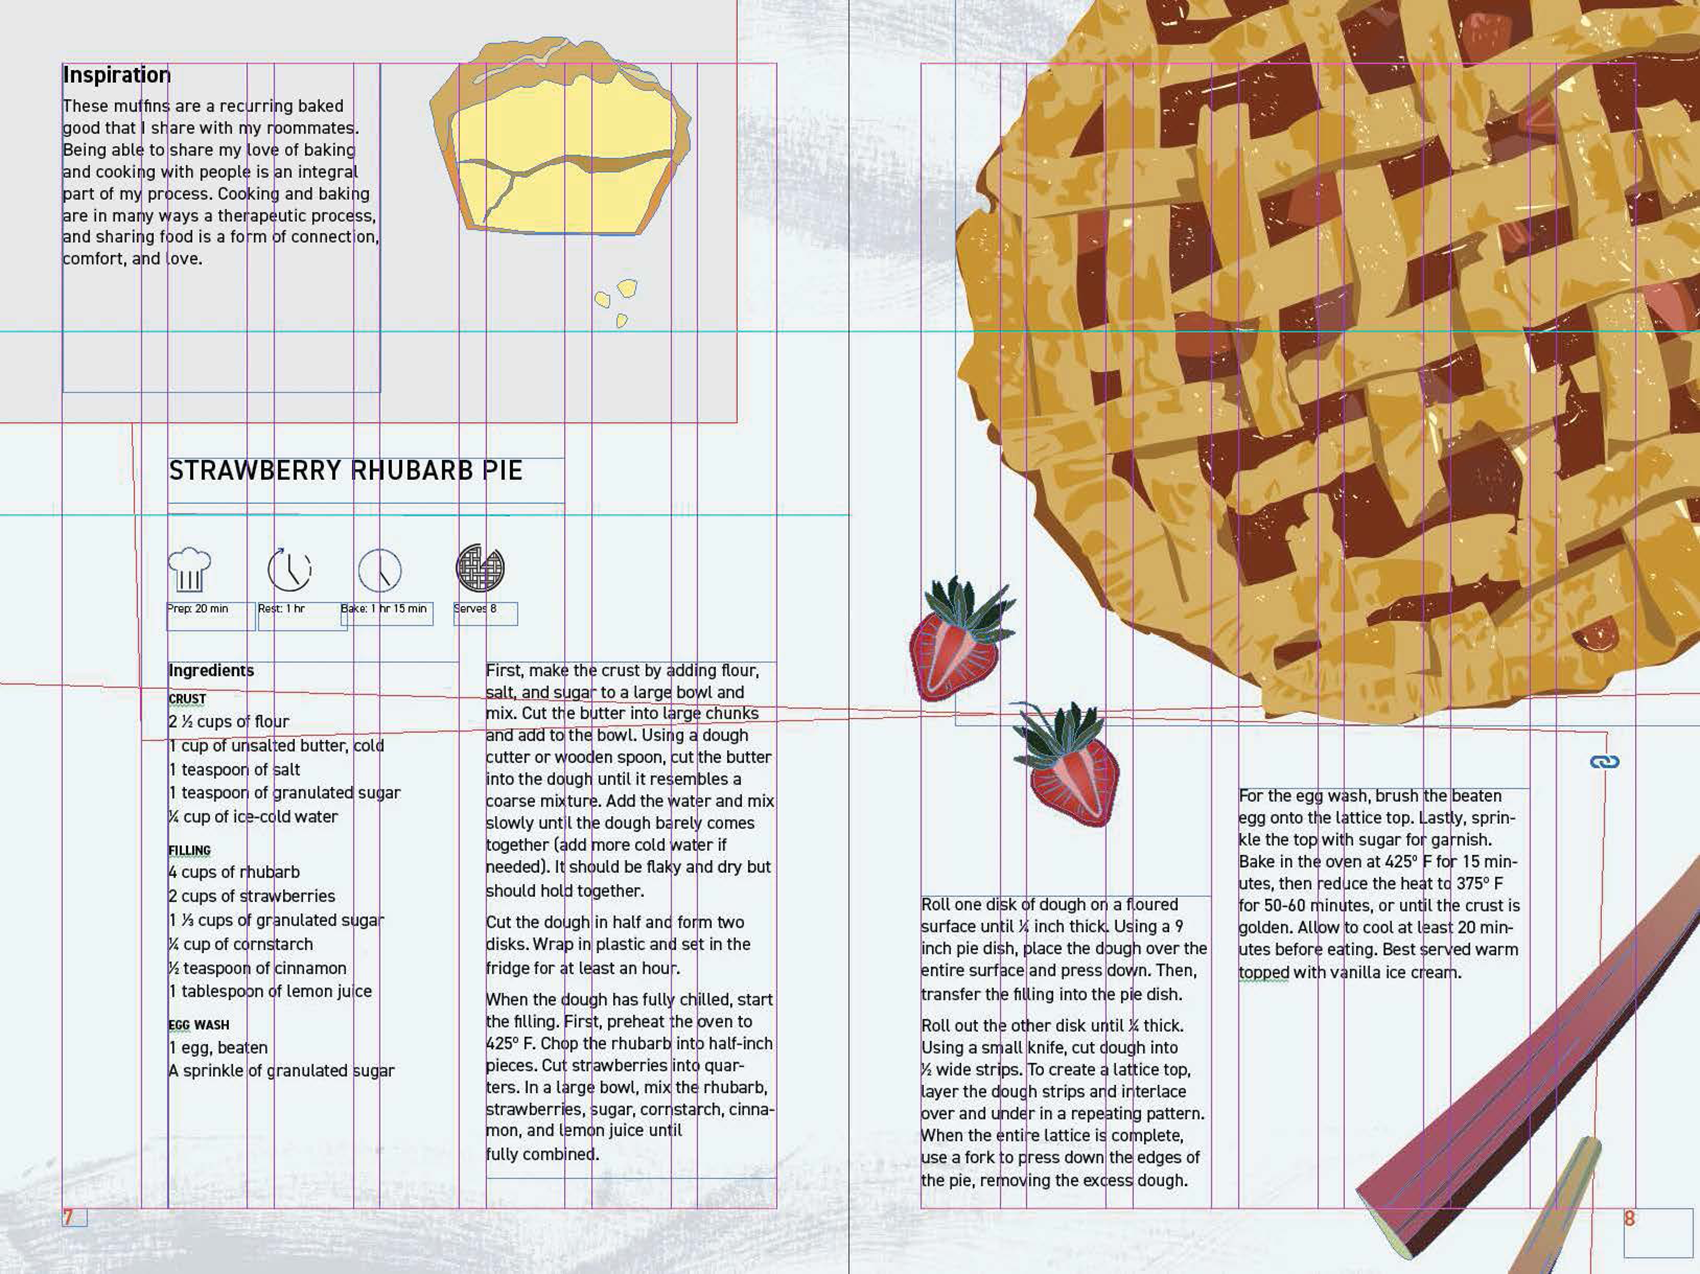 Inspiration
These muffins are a recurring baked
good that I share with my roommates.
Being able to share my love of baking
and cooking with people is an integral
part of my process. Cooking and baking
are in many ways a therapeutic process,
and sharing food is a form of connection,
comfort, and love.
STRAWBERRY RHUBARB PIE
Prep: 20 min
Rest: 1 hr
Bake: 1 hr 15 min
Serves 8
Ingredients
CRUST
2 ½ cups of flour
1 cup of unsalted butter, cold
1 teaspoon of salt
1 teaspoon of granulated sugar
¼ cup of ice-cold water
FILLING
4 cups of rhubarb
2 cups of strawberries
1 ⅓ cups of granulated sugar
¼ cup of cornstarch
½ teaspoon of cinnamon
1 tablespoon of lemon juice
EGG WASH
1 egg, beaten
A sprinkle of granulated sugar
First, make the crust by adding flour,
salt, and sugar to a large bowl and
mix. Cut the butter into large chunks
and add to the bowl. Using a dough
cutter or wooden spoon, cut the butter
into the dough until it resembles a
coarse mixture. Add the water and mix
slowly until the dough barely comes
together (add more cold water if
needed). It should be flaky and dry but
should hold together.
Cut the dough in half and form two
disks. Wrap in plastic and set in the
fridge for at least an hour.
When the dough has fully chilled, start
the filling. First, preheat the oven to
425º F. Chop the rhubarb into half-inch
pieces. Cut strawberries into quar-
ters. In a large bowl, mix the rhubarb,
strawberries, sugar, cornstarch, cinna-
mon, and lemon juice until
fully combined.
7
Roll one disk of dough on a floured
surface until ¼ inch thick. Using a 9
inch pie dish, place the dough over the
entire surface and press down. Then,
transfer the filling into the pie dish.
Roll out the other disk until ¼ thick.
Using a small knife, cut dough into
½ wide strips. To create a lattice top,
layer the dough strips and interlace
over and under in a repeating pattern.
When the entire lattice is complete,
use a fork to press down the edges of
the pie, removing the excess dough.
For the egg wash, brush the beaten
egg onto the lattice top. Lastly, sprin-
kle the top with sugar for garnish.
Bake in the oven at 425º F for 15 min-
utes, then reduce the heat to 375º F
for 50-60 minutes, or until the crust is
golden. Allow to cool at least 20 min-
utes before eating. Best served warm
topped with vanilla ice cream.
8